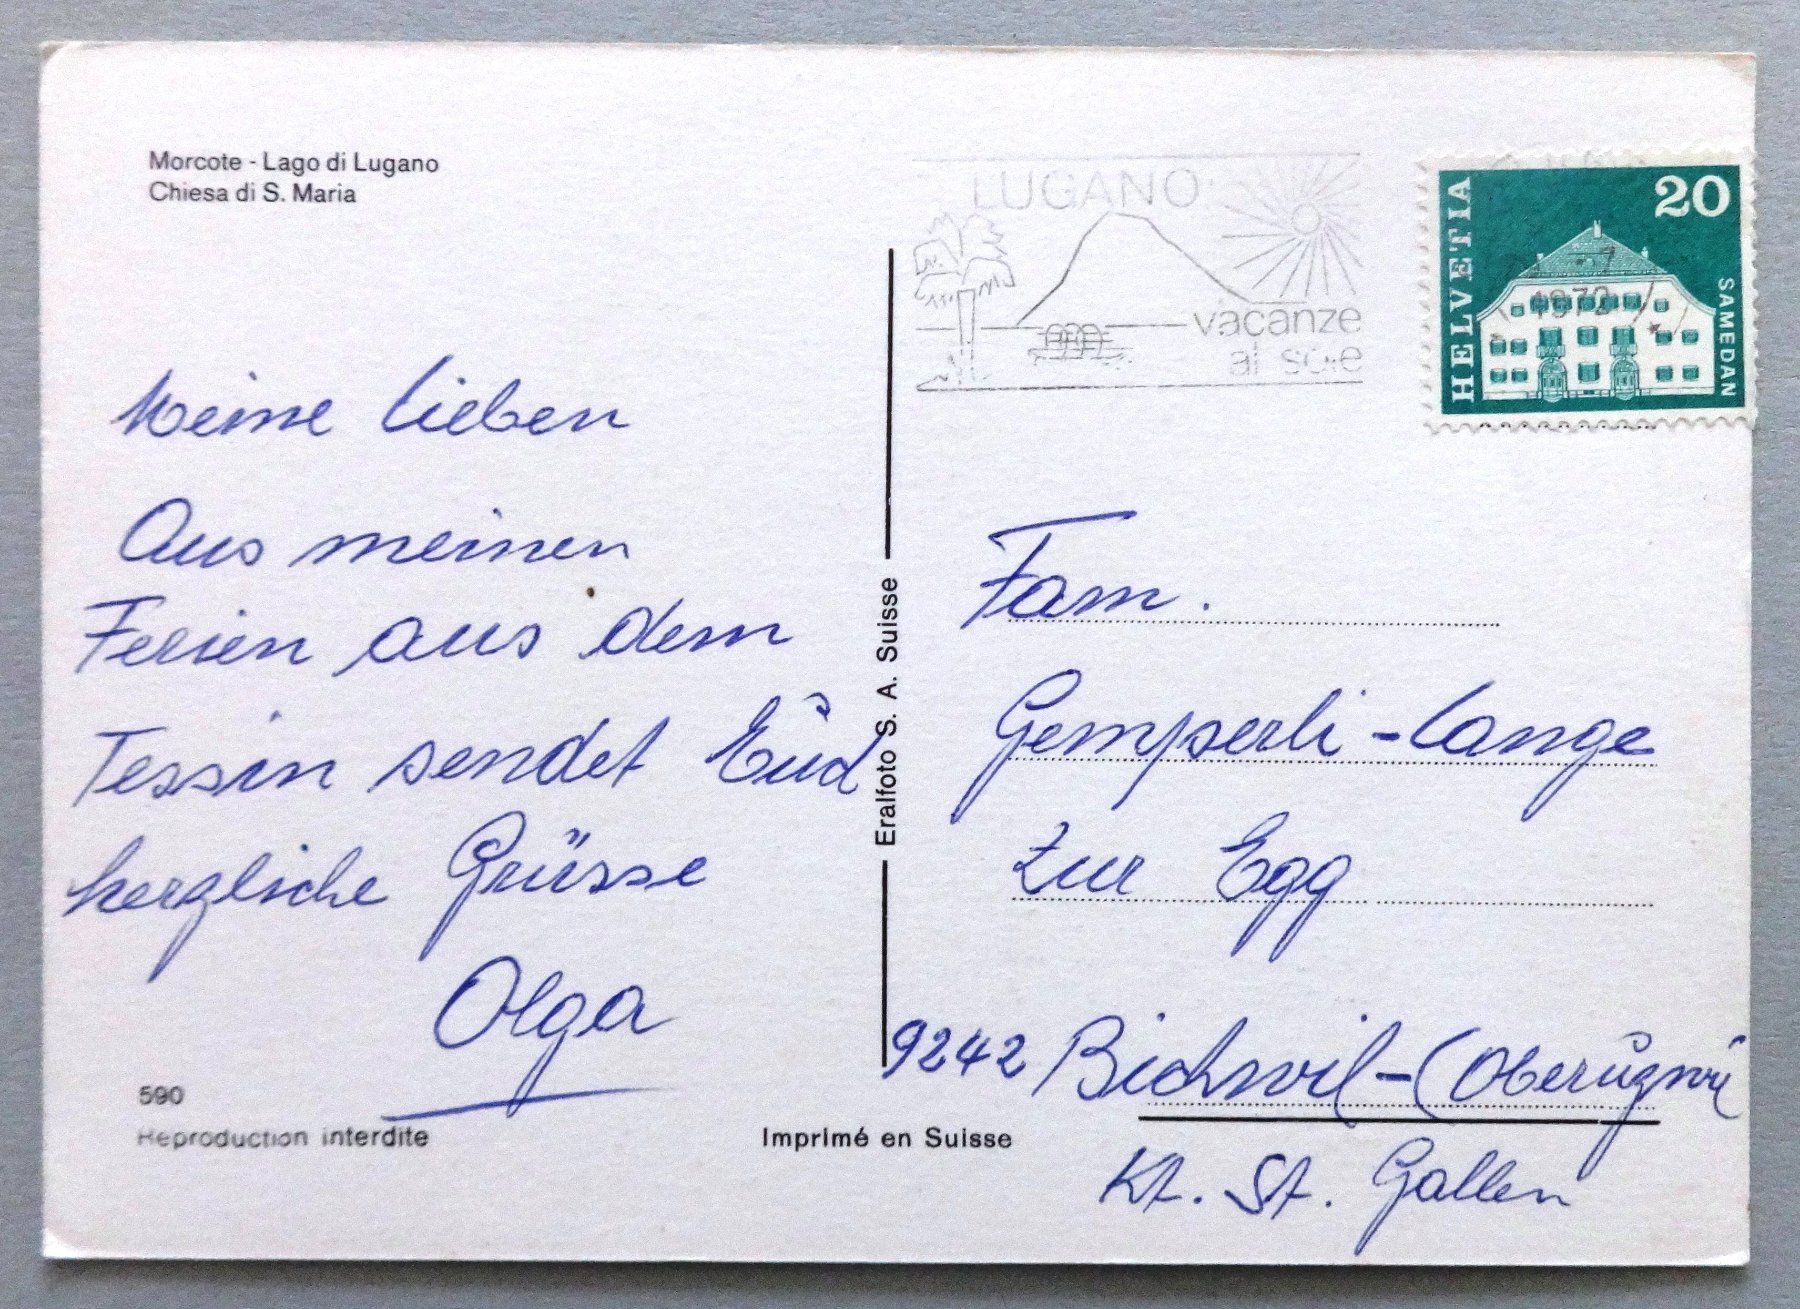 Morcote - Lago di Lugano
Chiesa di S. Maria
Meine Lieben
Aus meinen
Ferien aus dem
Tessin sendet Eud
herzliche Grüsse
Olga
590
Reproduction interdite
Imprimé en Suisse
Eralfoto S. A. Suisse
LUGANO
vacanze
al sole
HELVETIA
20
SAMEDAN
1972
Fam.
Gemperli-Lange
Zur Egg
9242 Bichwil-(Oberuzwil
Kt. St. Gallen